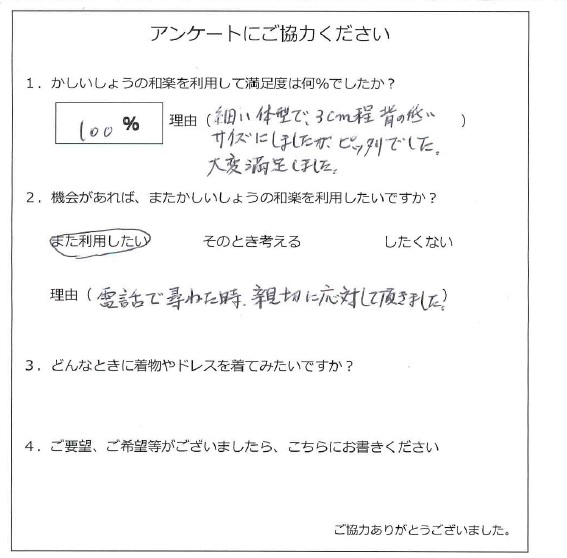 アンケートにご協力ください
1．かしいしょうの和楽を利用して満足度は何％でしたか？
100 ％ 理由（細い体型で、3cm程背の低い）
サイズにしましたが、ピッタリでした。
大変満足しました。
2．機会があれば、またかしいしょうの和楽を利用したいですか？
また利用したい そのとき考える したくない
理由（電話で尋ねた時、親切に応対して頂きました。）
3．どんなときに着物やドレスを着てみたいですか？
4．ご要望、ご希望等がございましたら、こちらにお書きください
ご協力ありがとうございました。